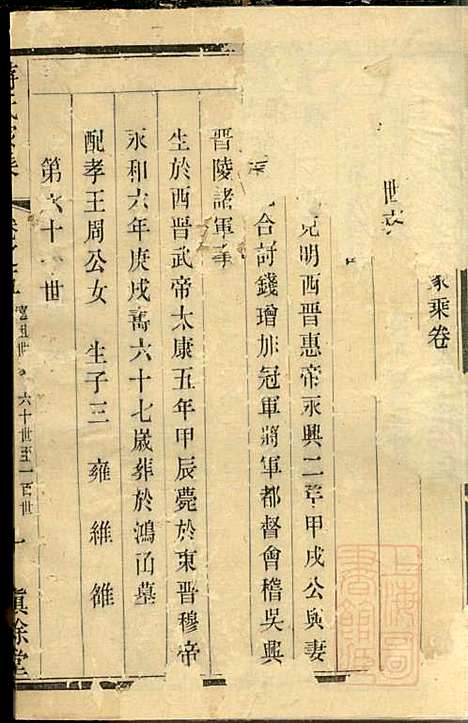 家乘卷
世表
克明西晉惠帝永興二年甲戌公與妻
合討錢璯加冠軍將軍都督會稽吳興
晉陵諸軍事
生於西晉武帝太康五年甲辰薨於東晉穆帝
永和六年庚戌壽六十七歲葬於鴻山墓
配孝王周公女 生子三 雍 維 雒
第六十 世
氏家乘 卷之五 世 六十世至一百世 一 眞除堂
上海 書館